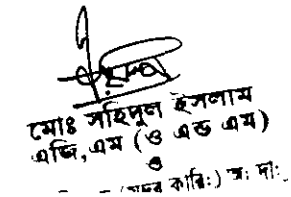 মোঃ সহিদুল ইসলাম
এজি,এম (ও এন্ড এম)
ও
(সদর কারি:) অ: দা: